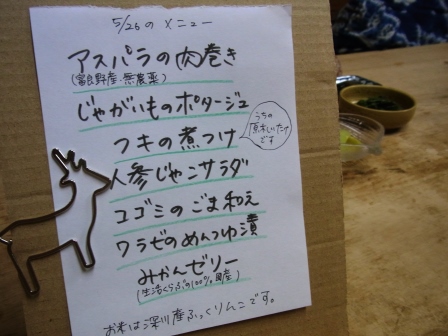 5/26のメニュー
アスパラの肉巻き
(富良野産・無農薬)
じゃがいものポタージュ
フキの煮つけ
うちの
原木しいたけ
です
人参じゃこサラダ
コゴミのごま和え
ワラビのめんつゆ漬
みかんゼリー
(生活くらぶの100%国産)
お米は深川産ふっくりんこです。